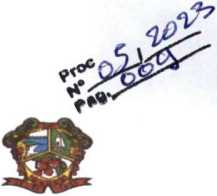 Proc
Nº 05, 2023
PAG. 009